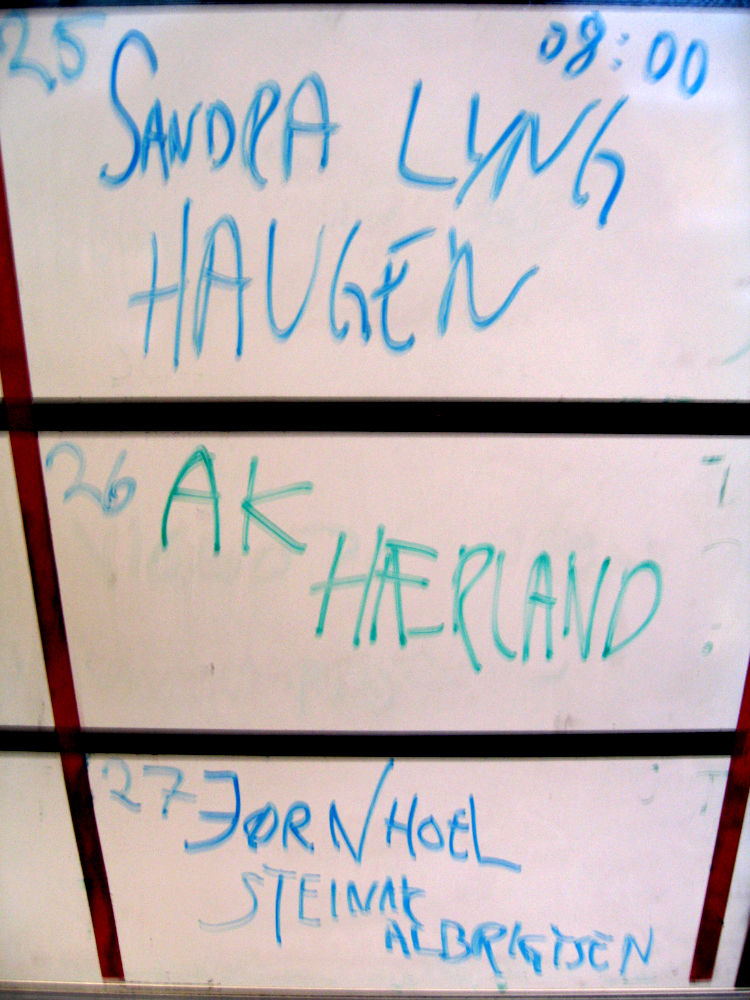 25 SANDRA LYNG 08:00
HAUGEN
26 AK
HÆRLAND
27 JØRN HOEL
STEINAR
ALBRIGTSEN